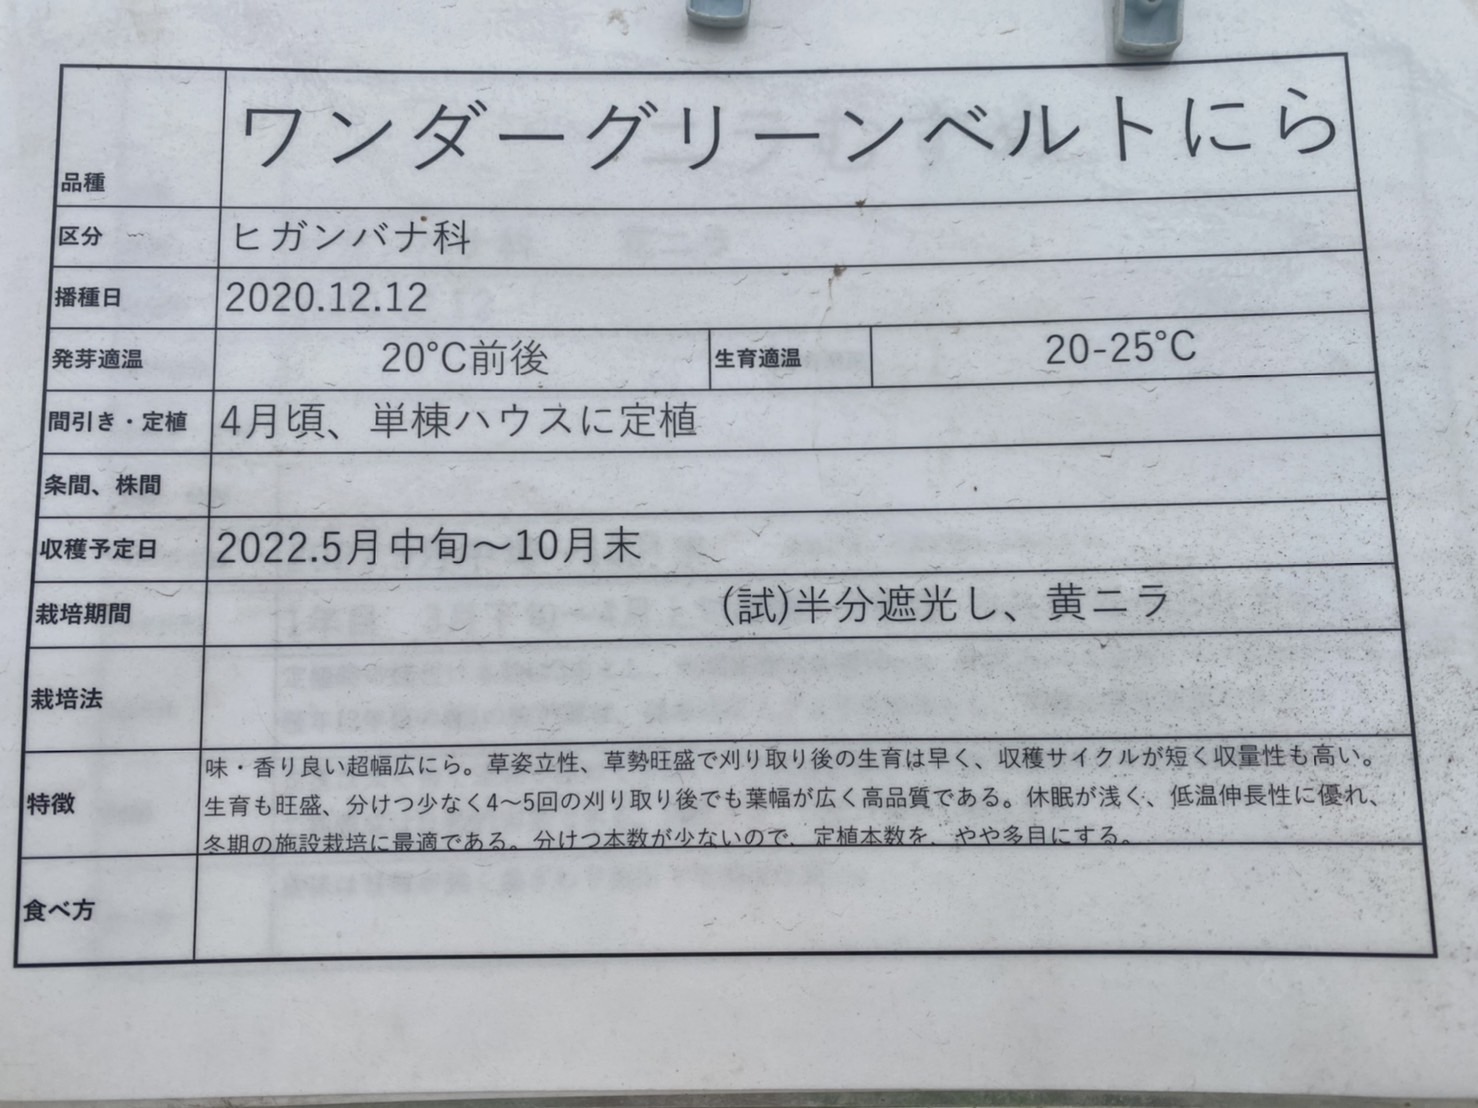 品種 ワンダーグリーンベルトにら
区分 ヒガンバナ科
播種日 2020.12.12
発芽適温 20℃前後 生育適温 20-25℃
間引き・定植 4月頃、単棟ハウスに定植
条間、株間
収穫予定日 2022.5月中旬～10月末
栽培期間 (試)半分遮光し、黄ニラ
栽培法
特徴 味・香り良い超幅広にら。草姿立性、草勢旺盛で刈り取り後の生育は早く、収穫サイクルが短く収量性も高い。
生育も旺盛、分けつ少なく4～5回の刈り取り後でも葉幅が広く高品質である。休眠が浅く、低温伸長性に優れ、
冬期の施設栽培に最適である。分けつ本数が少ないので、定植本数を、やや多目にする。
食べ方